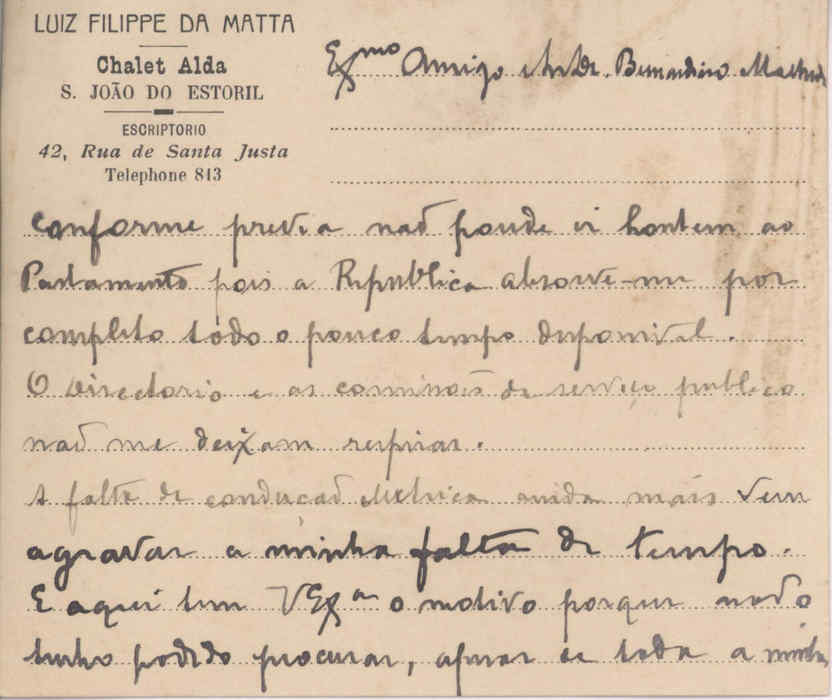 LUIZ FILIPPE DA MATTA
Chalet Alda
S. JOÃO DO ESTORIL
ESCRIPTORIO
42, Rua de Santa Justa
Telephone 813
Exmo Amigo Sr. Dr. Bernardino Machado
conforme previa não poude ir hontem ao
Parlamento pois a Republica absorve-me por
completo todo o pouco tempo disponivel.
O Directorio e as comissões de serviço publico
não me deixam respirar.
A falta de condução electrica ainda mais vem
agravar a minha falta de tempo.
E aqui tem VExa o motivo porque não o
tenho podido procurar, apezar de toda a minha